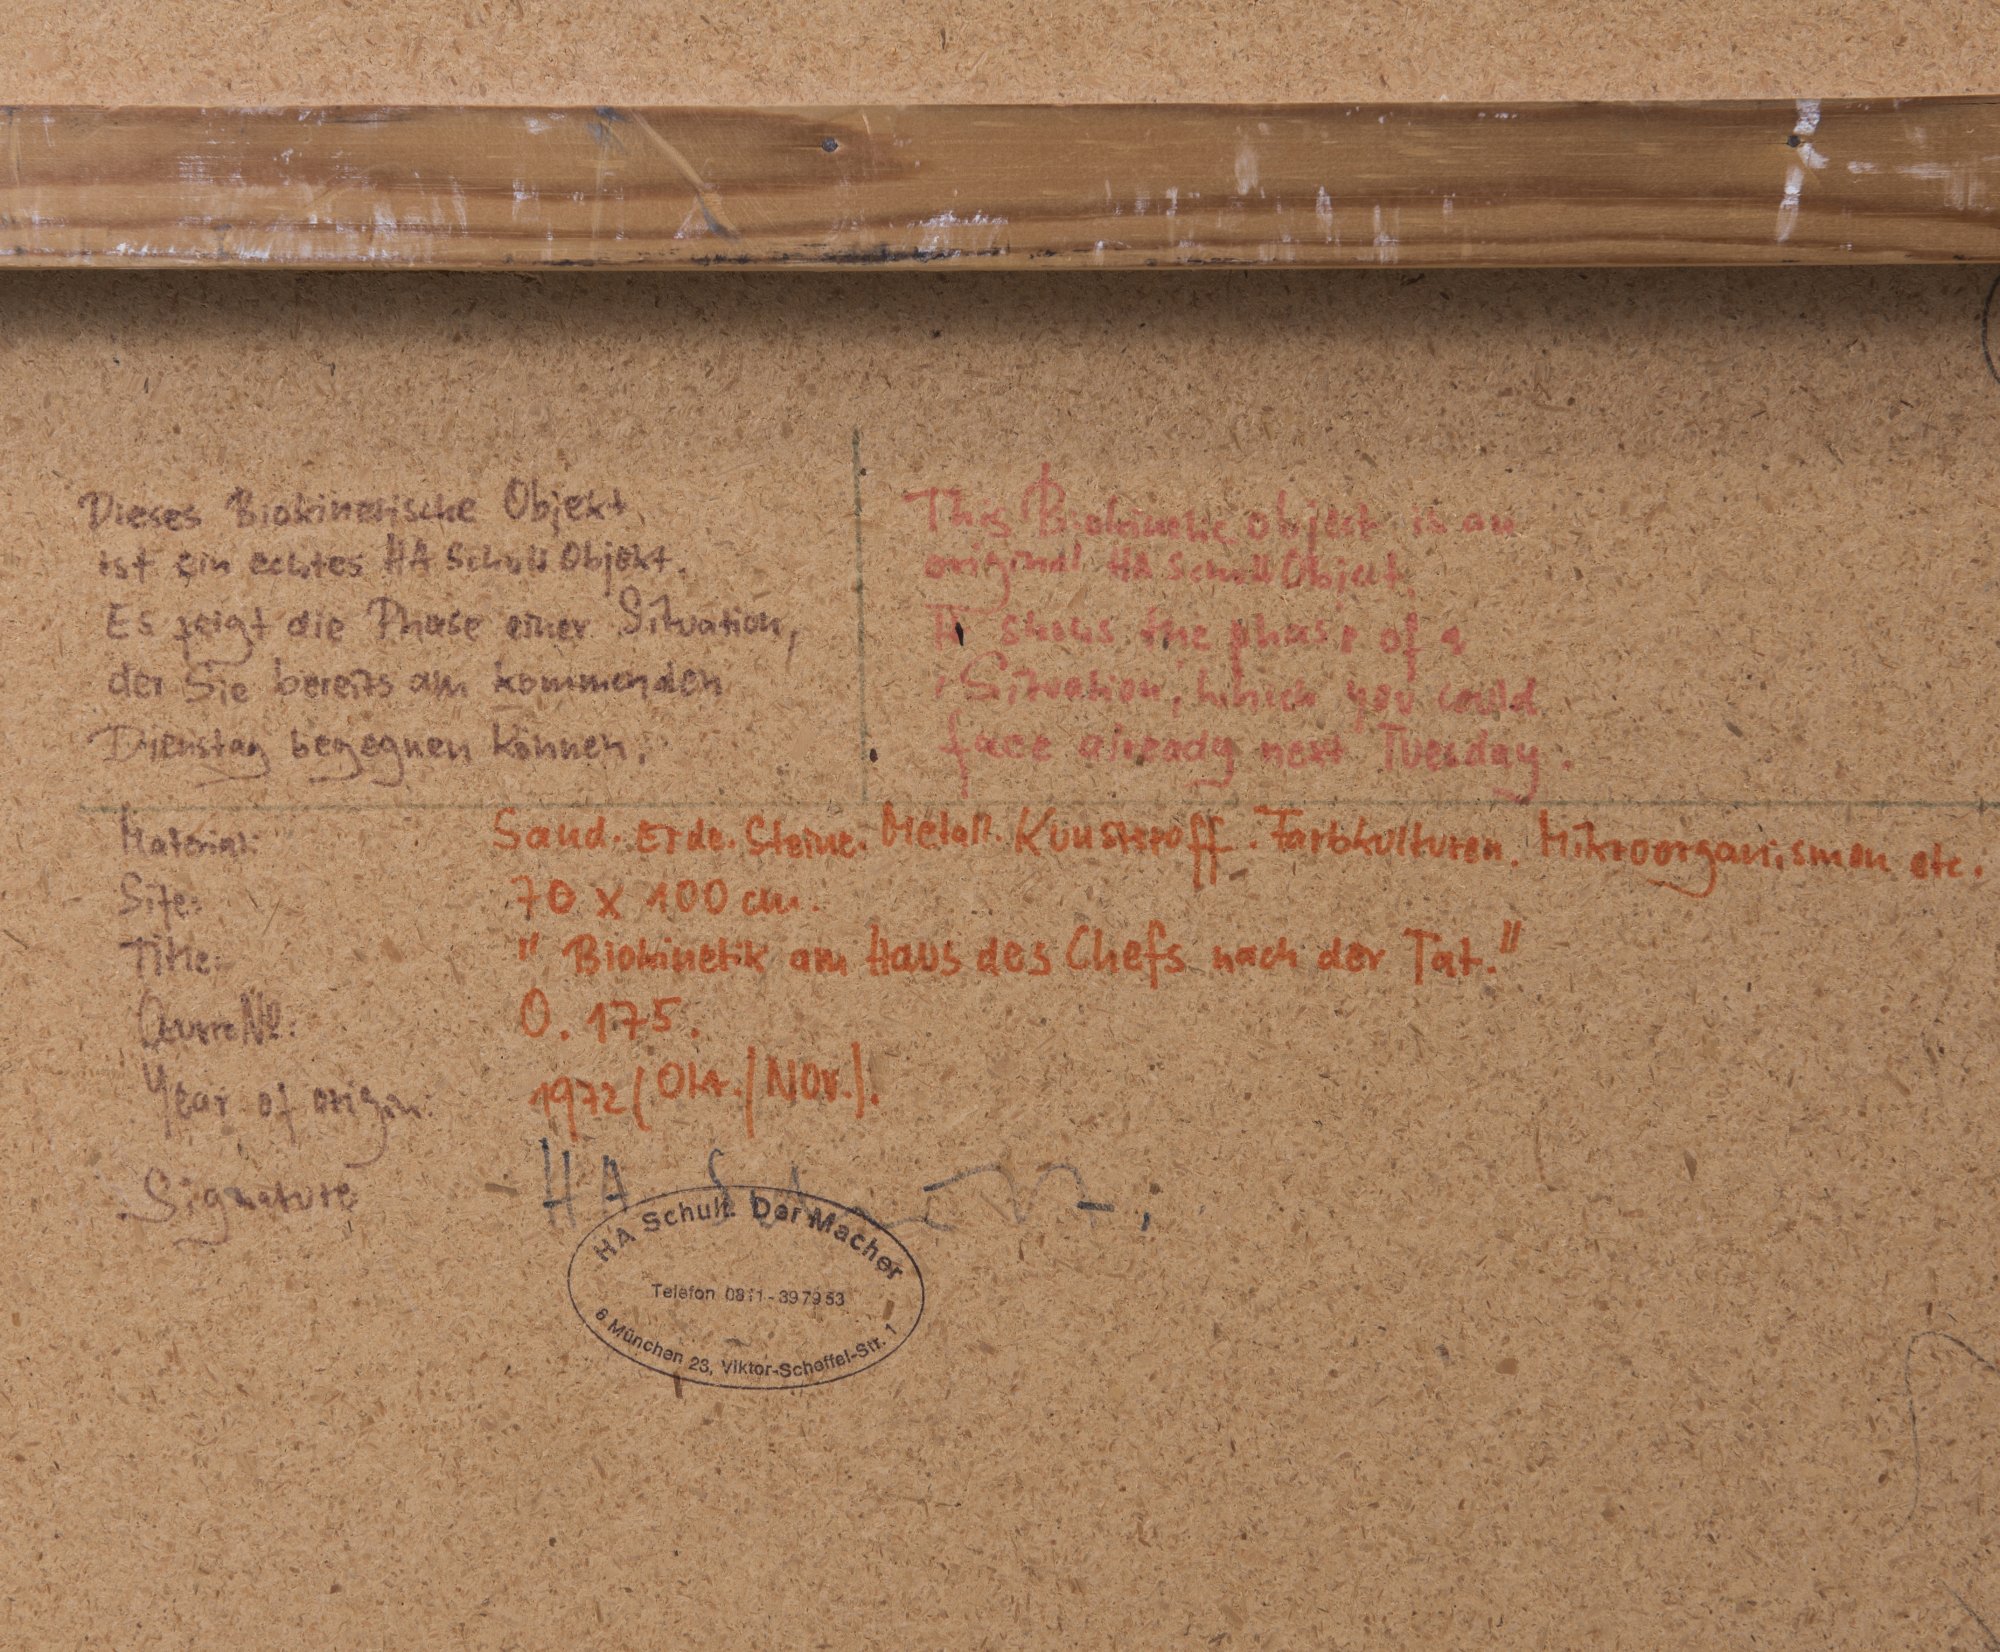 Dieses Biokinetische Objekt
ist ein echtes HA Schult Objekt.
Es zeigt die Phase einer Situation,
der Sie bereits am kommenden
Dienstag begegnen können.
This Biokinetic object is an
original HA Schult Object.
It shows the phase of a
Situation, which you could
face already next Tuesday.
Material: Sand. Erde. Steine. Metall. Kunststoff. Farbkulturen. Mikroorganismen etc.
Size: 70 x 100 cm.
Title: "Biokinetik am Haus des Chefs nach der Tat."
Œuvre Nº: O. 175.
Year of origin: 1972 (Okt./Nov.).
Signature HA Schult
HA Schult. Der Macher
Telefon 0811-397953
8 München 23, Viktor-Scheffel-Str. 1